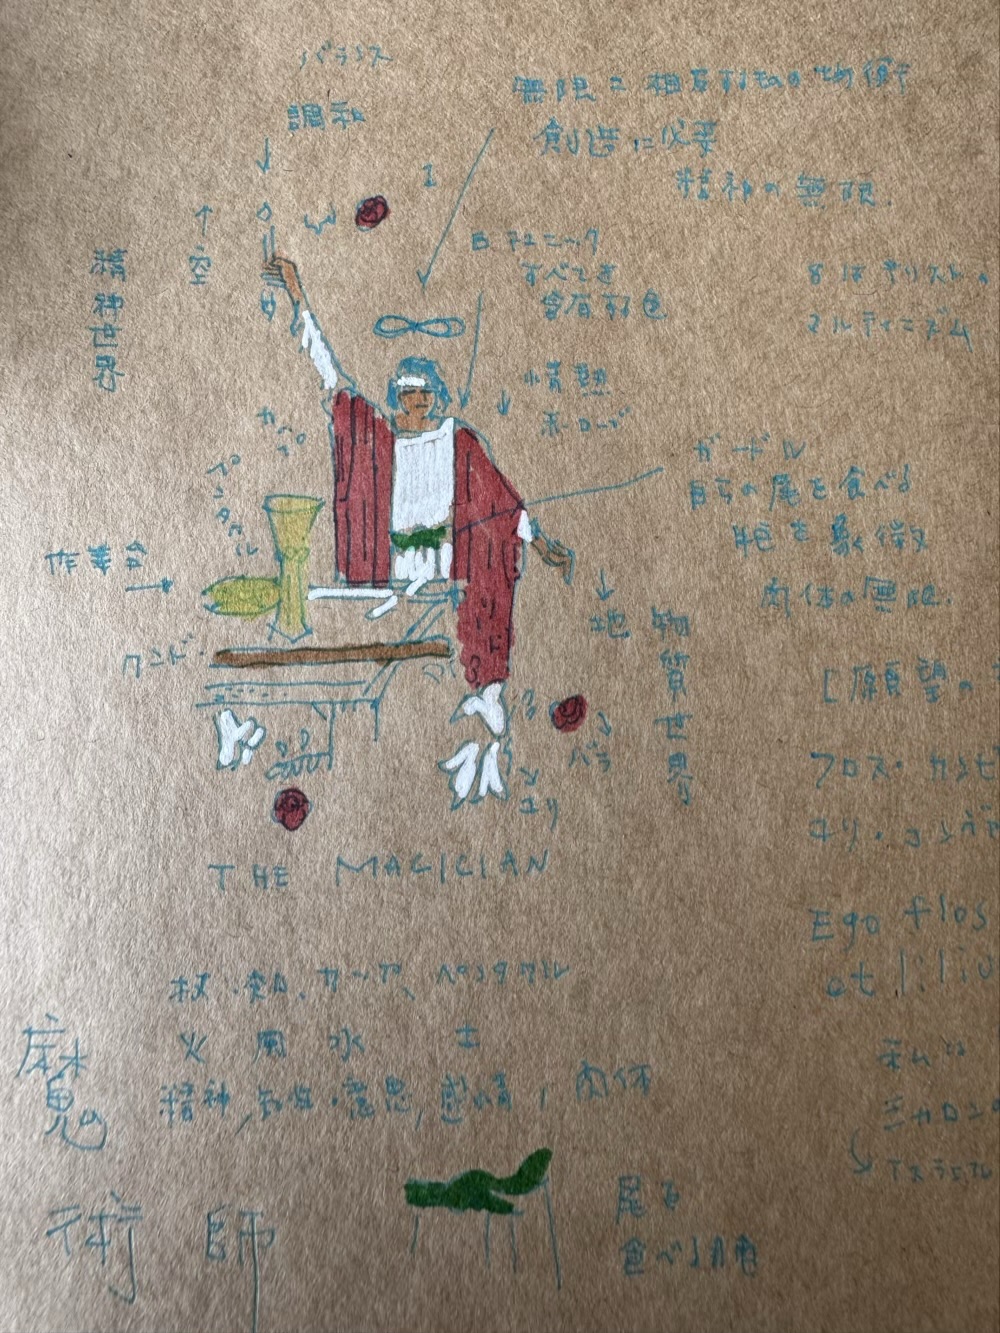 バランス
調和
無限 = 相反するもの
創造に必要
精神の無限.
I
↑
空
精神世界
すべてを
含有する色
8はキリスト
マルティニズム
情熱
赤ローブ
カップ
ペンタクル
ガードル
自らの尾を食べる
蛇を象徴
肉体の無限.
作業台
ワンド
地
物質世界
バラ
ユリ
[願望の
フロス・カンピ
THE MAGICIAN
Ego flos
et liliu
杖・剣、カップ、ペンタクル
火 風 水 土
精神,知性・意思,感情,肉体
私は
魔術師
尾を
食べる